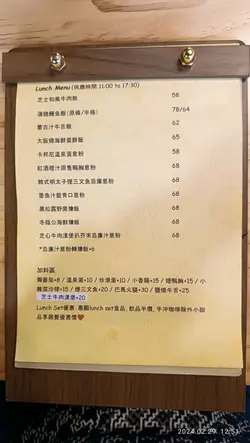 Lunch Menu (供應時間 11:00 to 17:30)
芝士和風牛肉飯 58
蒲燒鰻魚飯 (原條/半條) 78/64
蒙古汁牛舌飯 62
大阪燒海鮮蛋餅飯 65
卡邦尼溫泉蛋意粉 58
紅酒橙汁原隻鴨胸意粉 68
韓式明太子煙三文魚忌廉意粉 68
墨魚汁藍青口意粉 68
黑松露野菌燴飯 68
冬蔭公海鮮燴飯 68
芝心牛肉漢堡扒芥末忌廉汁意粉 68
*忌廉汁意粉轉燴飯+6
加料區
焗薯茄+8 / 溫泉蛋+10 / 炒滑蛋+10 / 小香腸+15 / 煙鴨胸+15 / 小
雜菜沙律+15 / 煙三文魚+20 / 巴馬火腿+30 / 鹽燒牛舌+25
芝士牛肉漢堡+20
Lunch Set優惠: 惠顧lunch set食品, 飲品半價, 手沖咖啡除外小甜
品享跟餐優惠價❤
2024.02.29 12:51